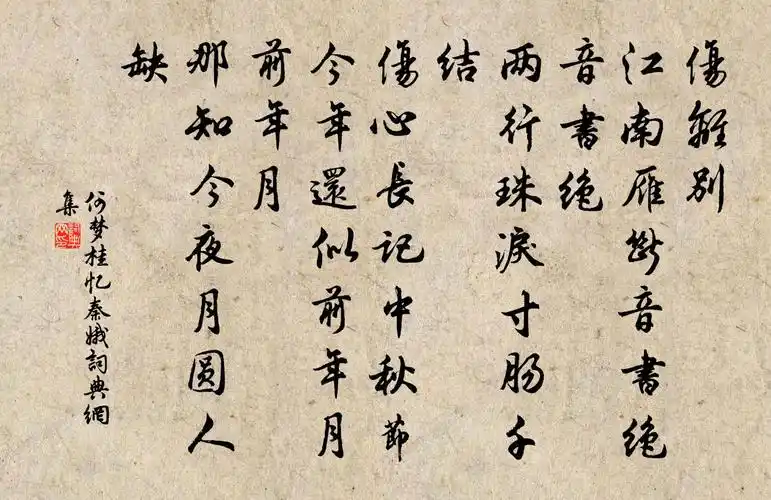 傷離別
江南雁斷音書絶
音書絶
兩行珠淚寸肠千
结
傷心長記中秋節
今年還似前年月
前年月
那知今夜月圆人
缺
何梦桂忆秦娥詞典網
集